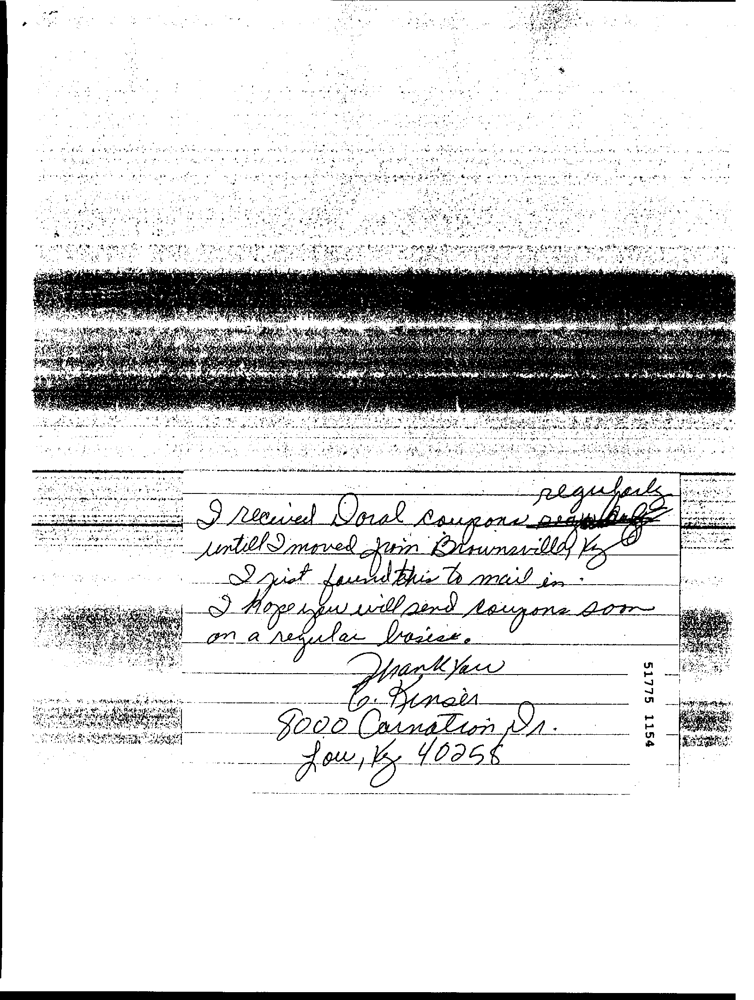 regularly
I received Doral coupons
untill I moved from Brownsville, Ky
I just found this to mail in.
I hope you will send coupons soon
on a regular basises.
Thank You
C. Kinser
8000 Carnation Dr.
Lou, Ky 40258
51775 1154